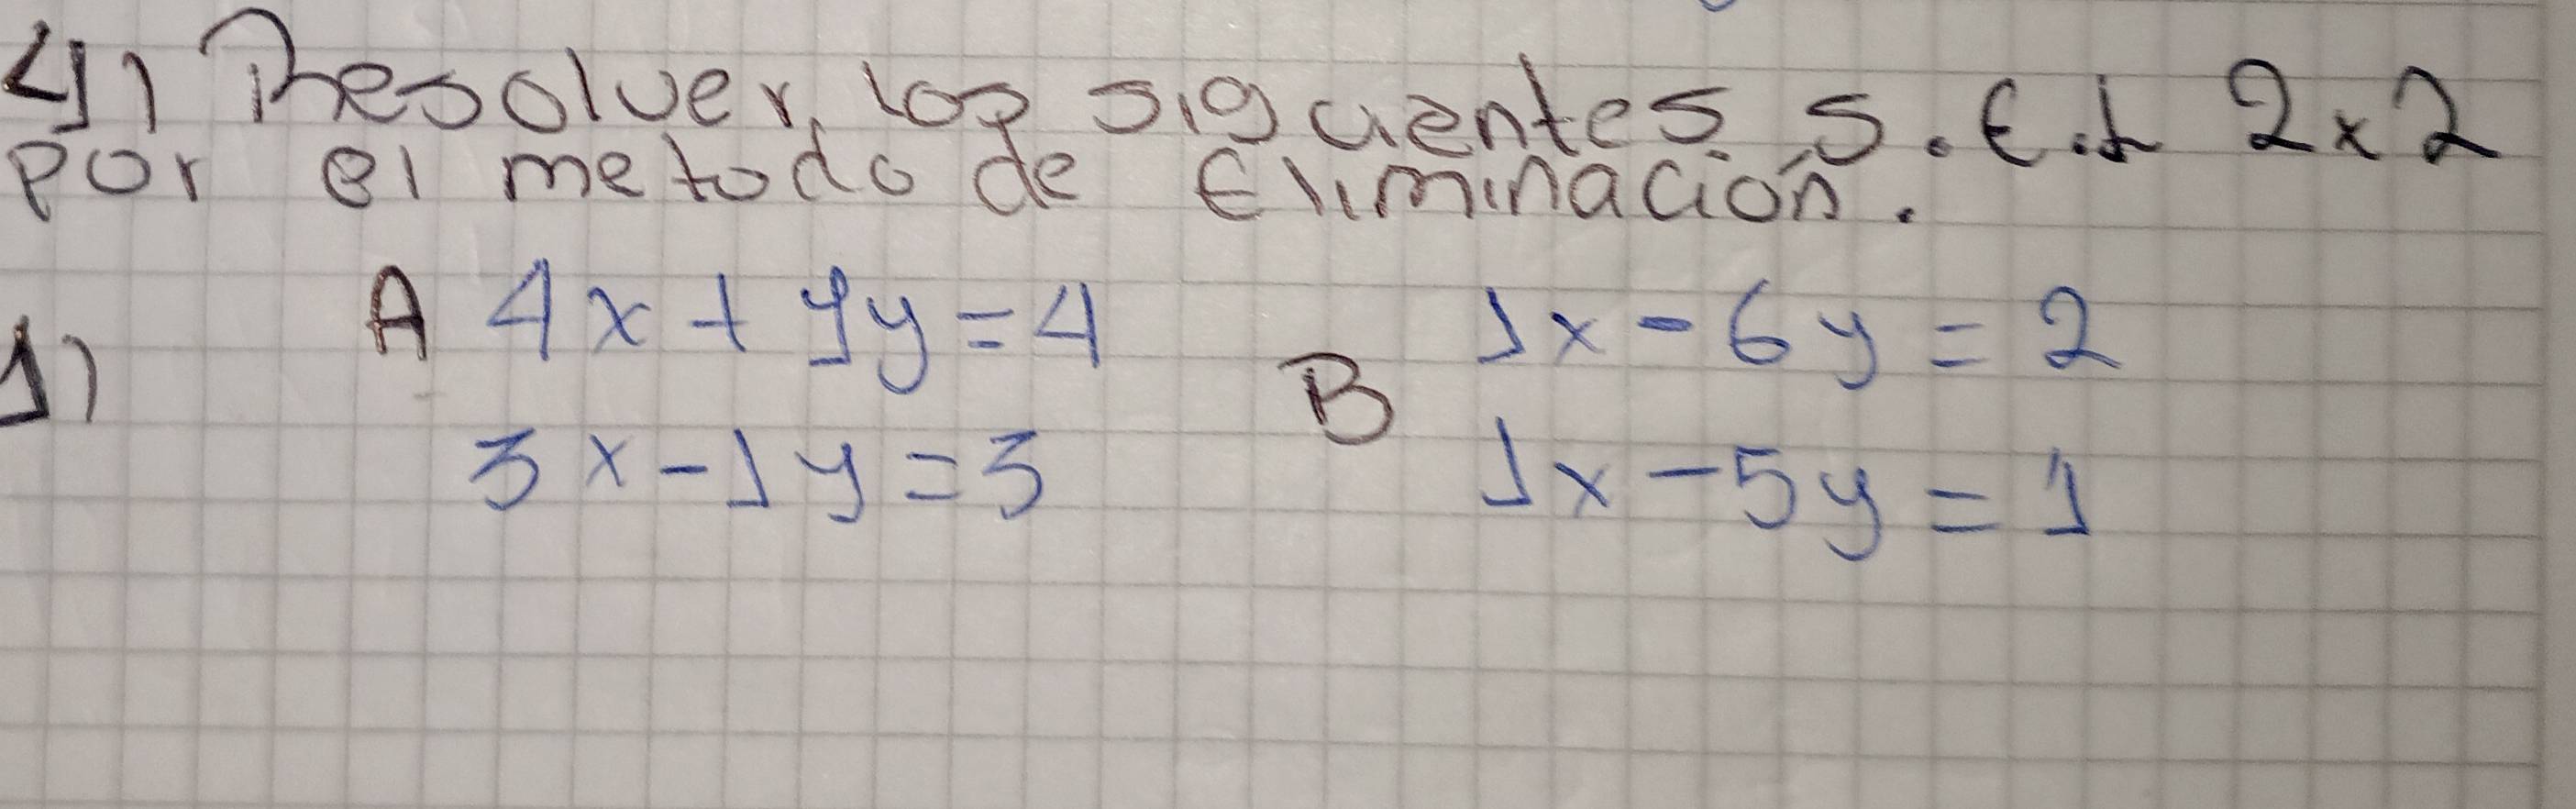 4) Resolver los siguientes S.E.L 2x2
por el metodo de Eliminación.
1) A 4x + 9y = 4
3x - 1y = 3
B 1x - 6y = 2
1x - 5y = 1